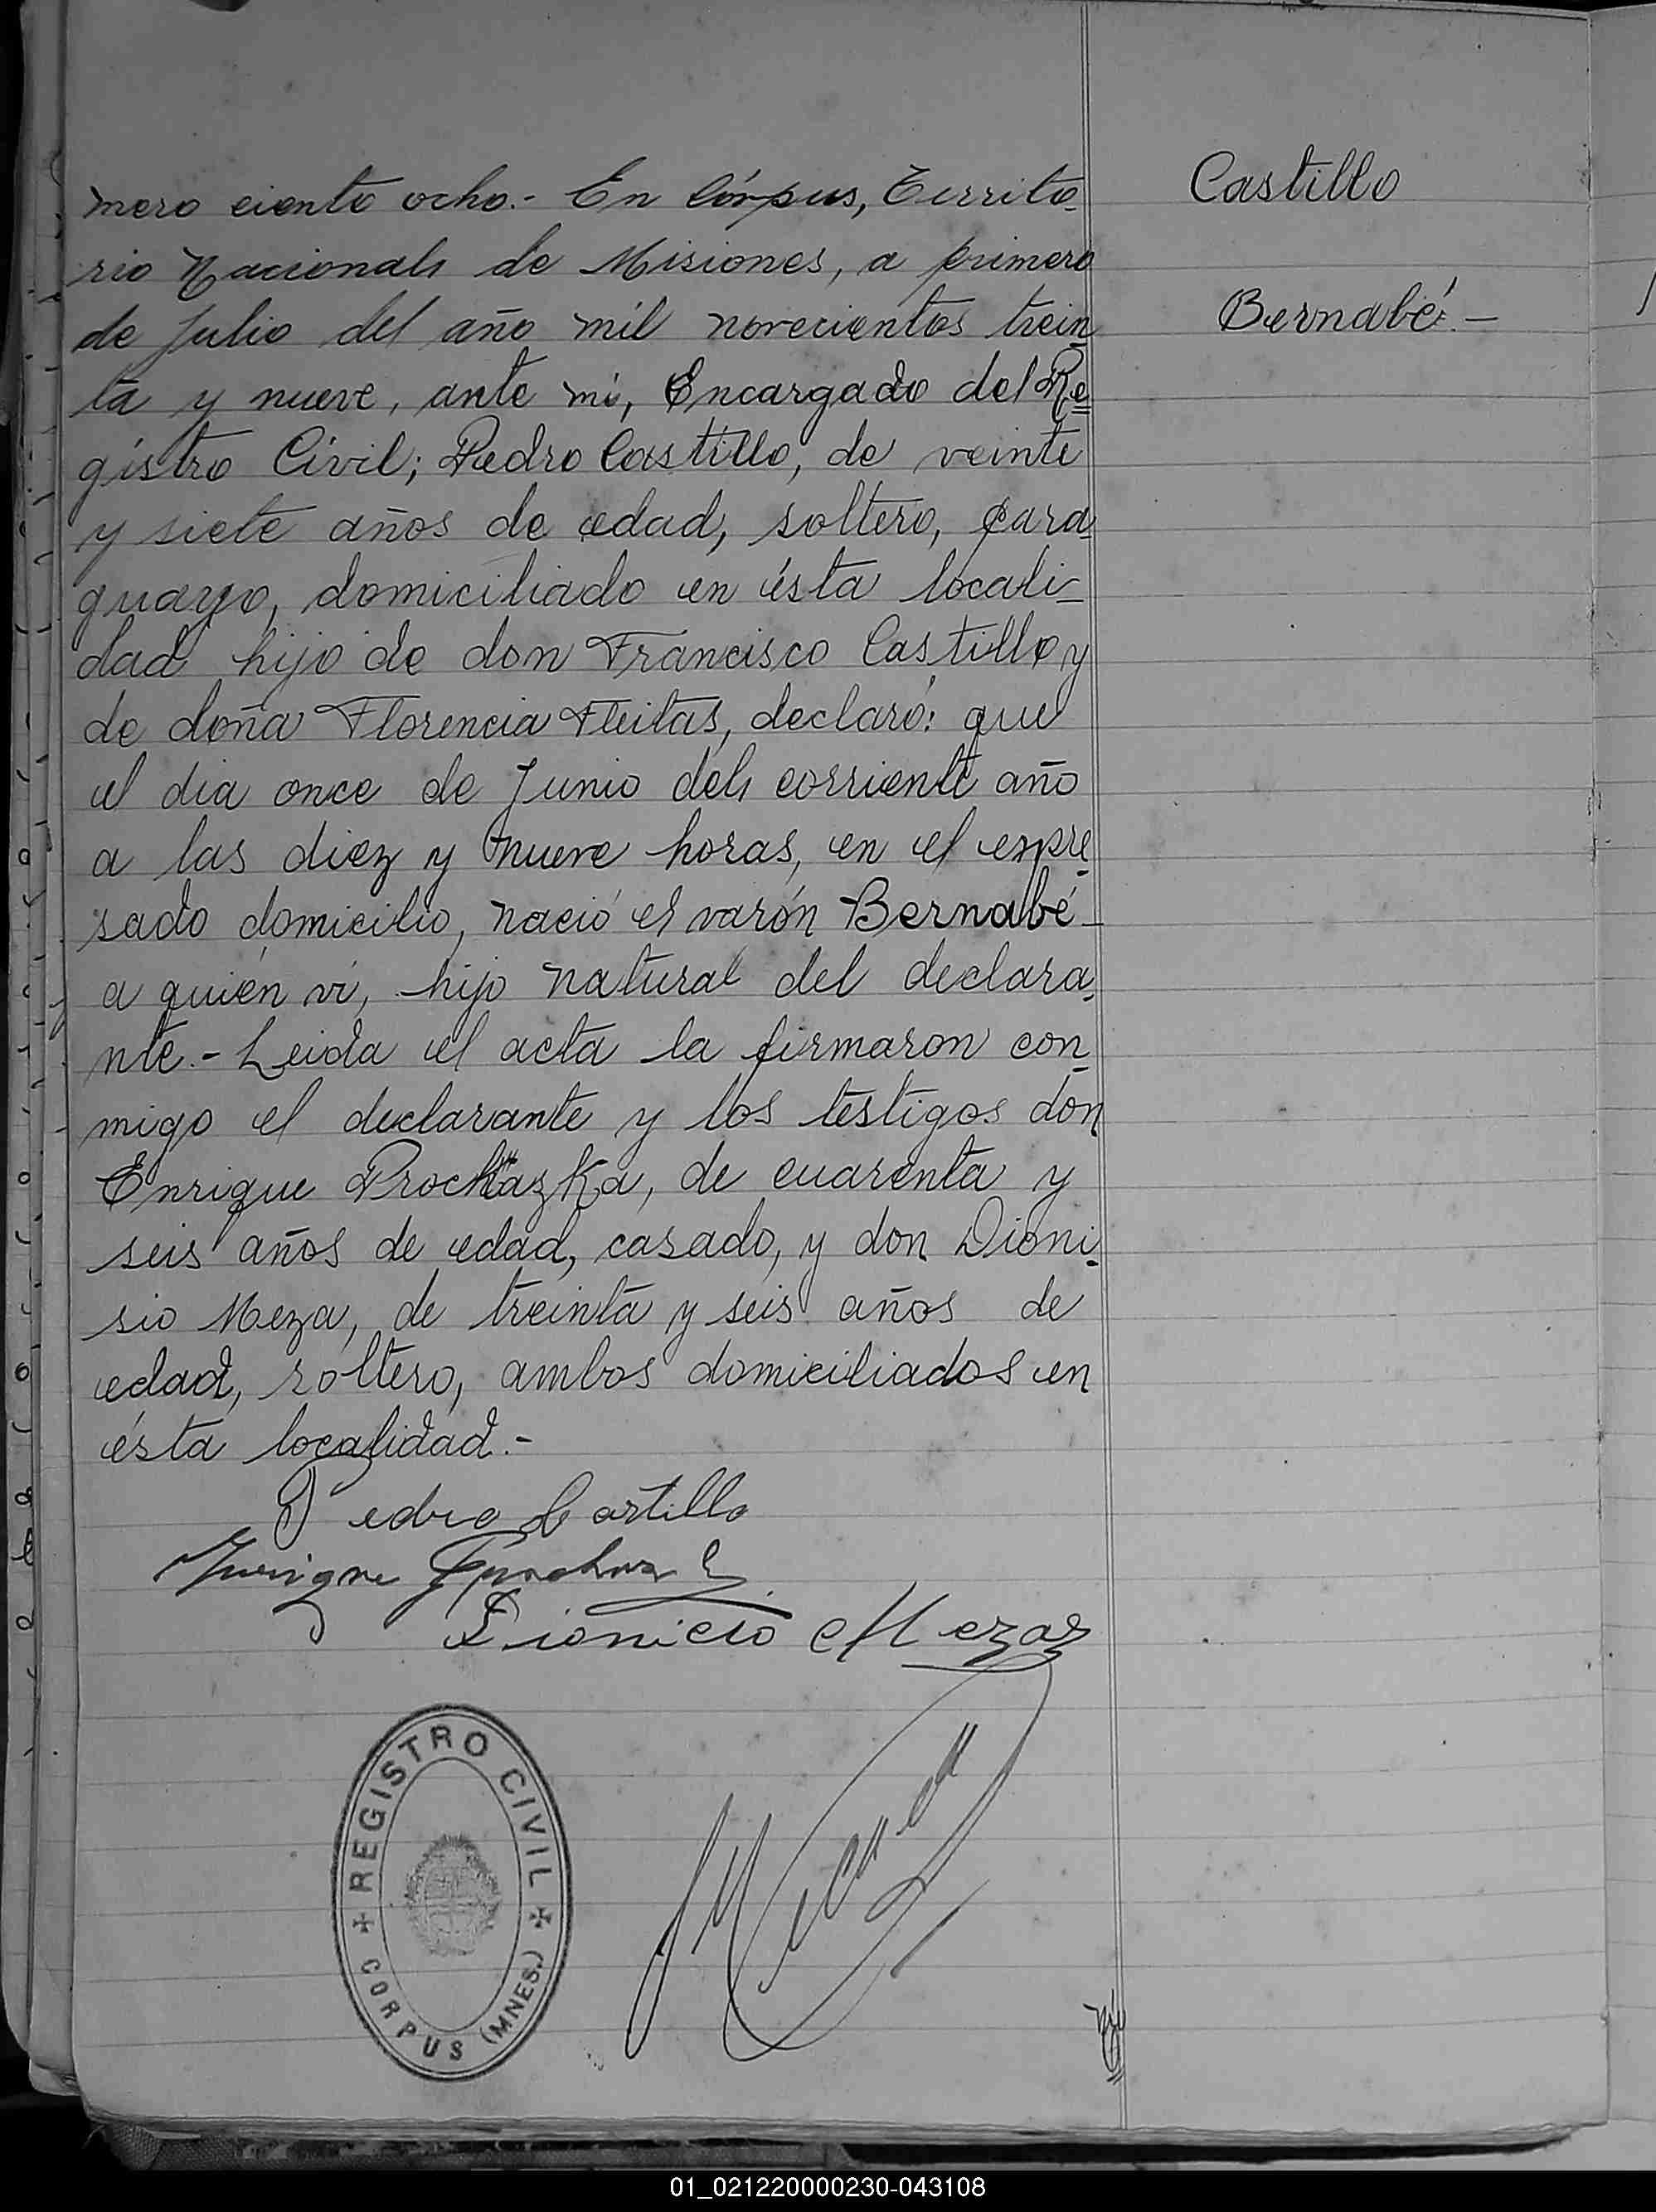 mero ciento ocho.- En Córpus, Territo-
rio Nacional de Misiones, a primero
de Julio del año mil novecientos trein-
ta y nueve, ante mi, Encargado del Re-
gistro Civil; Pedro Castillo, de veinte
y siete años de edad, soltero, para-
guayo, domiciliado en ésta locali-
dad hijo de don Francisco Castillo y
de doña Florencia Fleitas, declaró: que
el dia once de Junio del corriente año
a las diez y nueve horas, en el expre-
sado domicilio, nació el varón Bernabé-
a quién vi, hijo natural del declara-
nte.- Leida el acta la firmaron con-
migo el declarante y los testigos don
Enrique Prochazka, de cuarenta y
seis años de edad, casado, y don Dioni-
sio Meza, de treinta y seis años de
edad, soltero, ambos domiciliados en
ésta localidad.-
Pedro Castillo
Dionicio Meza
REGISTRO CIVIL
CORPUS (MNES.)
Castillo
Bernabé.-
01_021220000230-043108